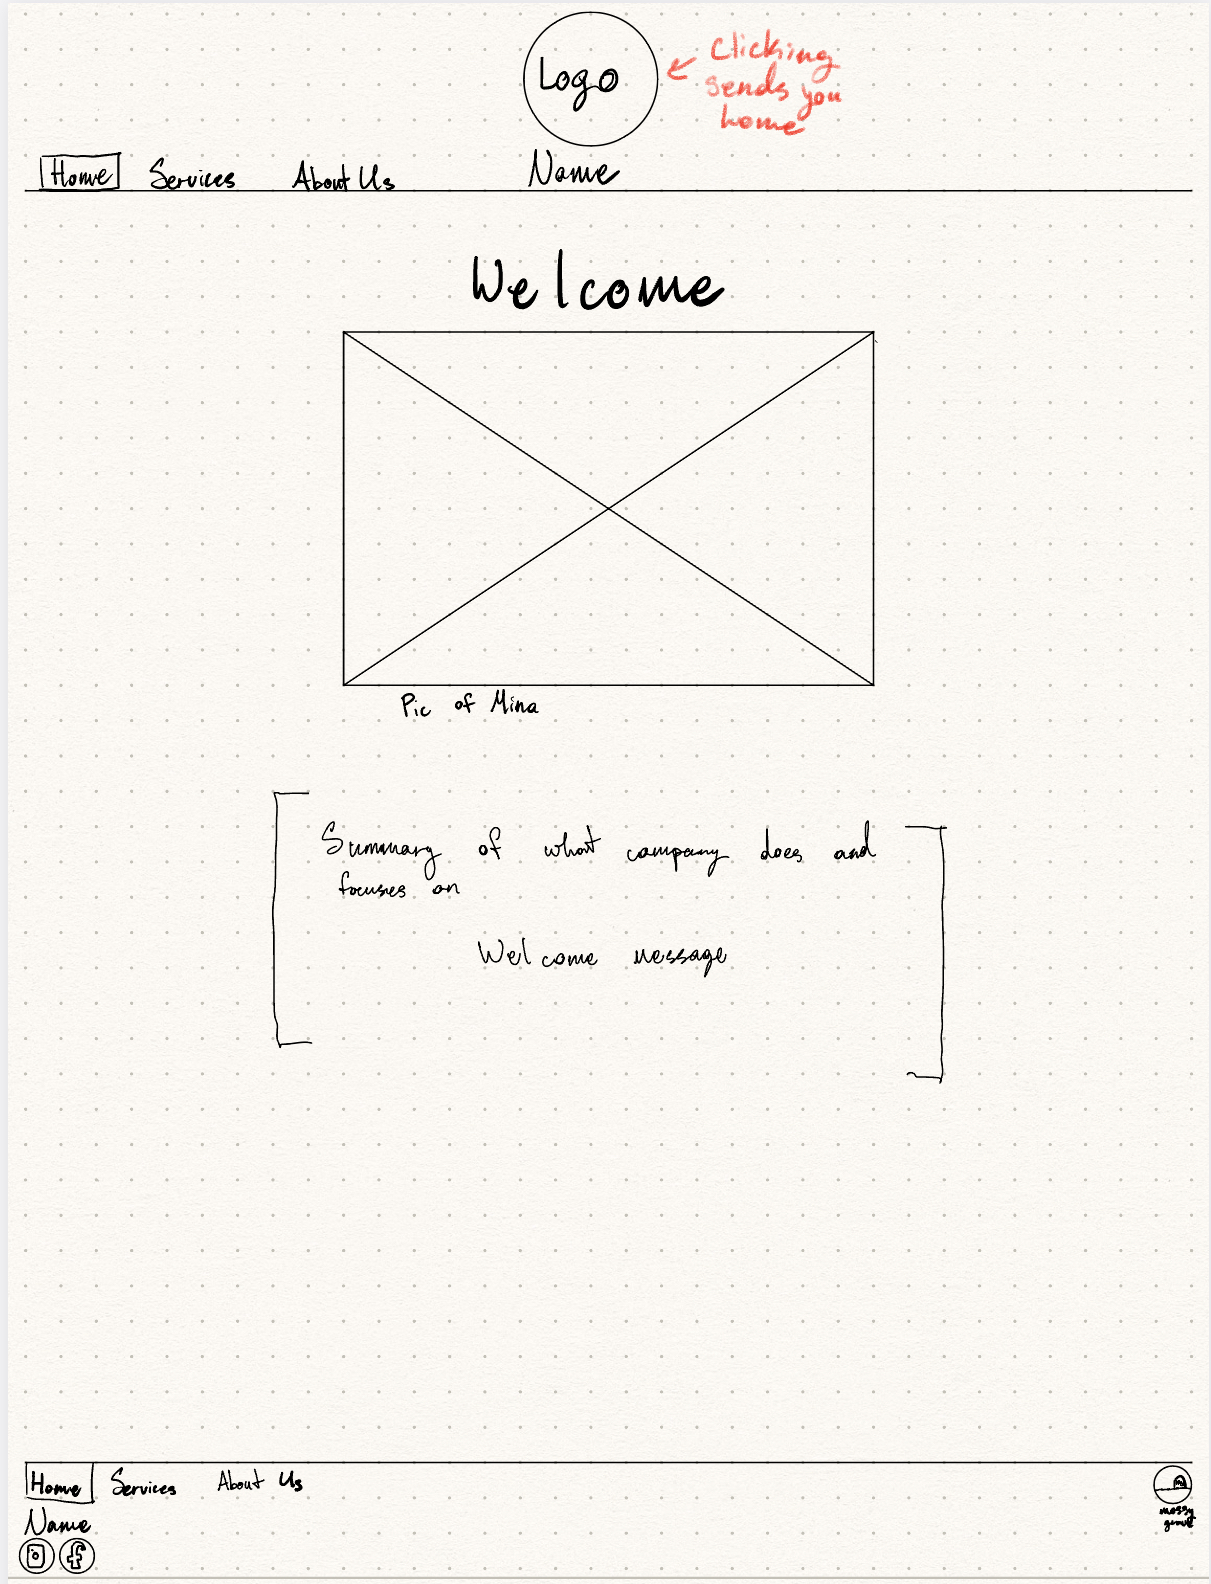 Logo
Clicking
sends you
home
Home Services About Us Name
Welcome
Pic of Mina
Summary of what company does and
focuses on
Welcome message
Home Services About Us
Name
mossy